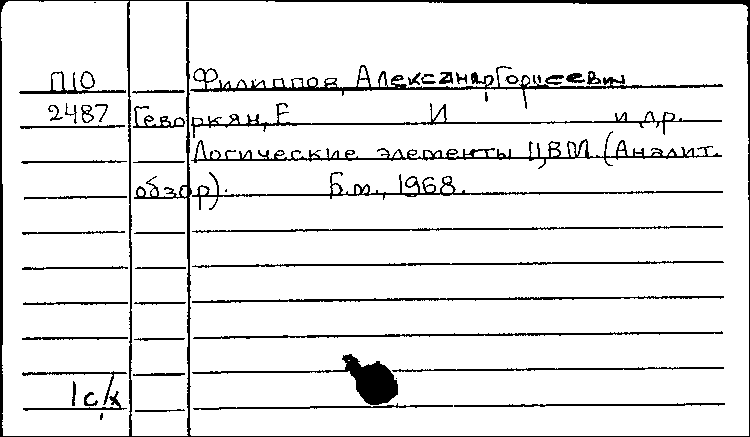 П10 Филиппов, Александр Горисевич
2487 Геворкян, Е И и др.
Логические элементы ЦВМ. (Аналит.
обзор). Б.м., 1968.
1 с/х